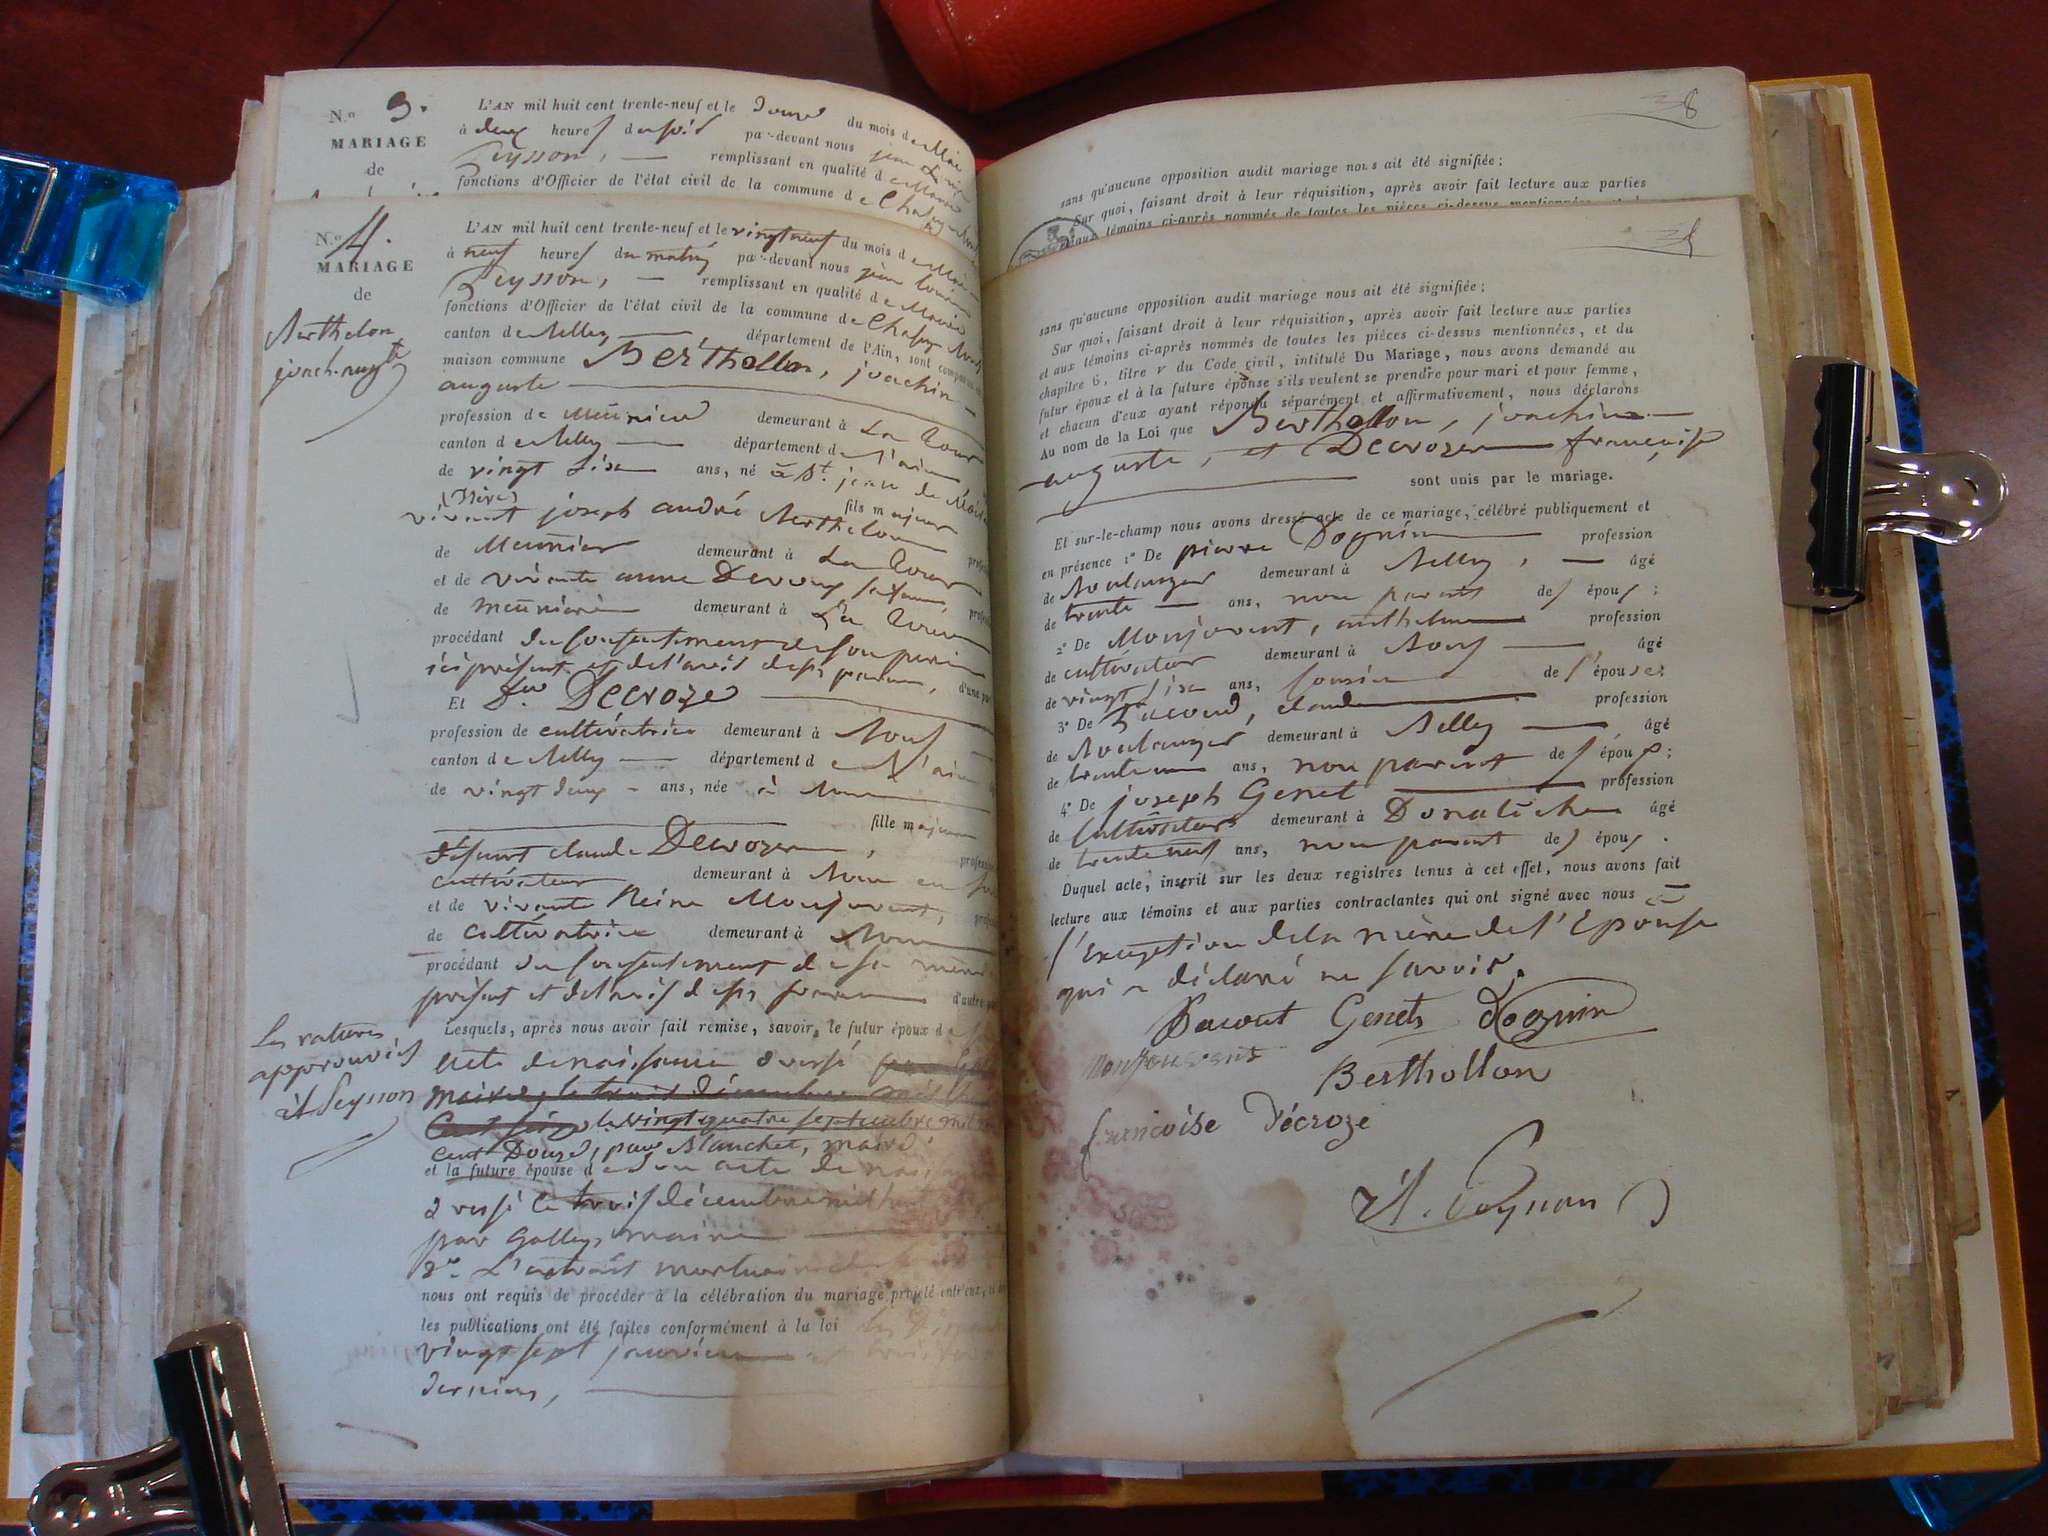 N.º 3.
MARIAGE
de
L'AN mil huit cent trente-neuf et le douze du mois de Mai
à deux heures du soir par-devant nous jean Louis
Peysson, — remplissant en qualité de Maire
fonctions d'Officier de l'état civil de la commune de Chazey
N.º 4.
MARIAGE
de
Berthelon
joach. augte
L'AN mil huit cent trente-neuf et le vingt neuf du mois de
à neuf heures du matin par-devant nous jean Louis
Peysson, — remplissant en qualité de Maire
fonctions d'Officier de l'état civil de la commune de Chazey
canton de Belley département de l'Ain, sont comparus
maison commune Berthollon, joachin
auguste
profession de Meunier demeurant à La Cour
canton de Belley département de l'ain
de vingt six ans, né à St. jean de
fils majeur
vivant joseph andré Berthelon
de Meunier demeurant à La Cour
et de vivante anne
de meunière demeurant à La Cour
procédant du consentement de son père
ici présent et de l'avis de ses parens, d'une part
Et Dr. Decroze
profession de cultivatrice demeurant à Bons
canton de Belley département de l'ain
de vingt deux ans, née à Bons
fille majeure
défunt claude Decroze,
cultivateur demeurant à Bons en son
et de vivante Reine Monjovent,
de cultivatrice demeurant à Bons
procédant du consentement de sa mère
présent et de l'avis de ses parens d'autre part
Les ratures
approuvées
Peysson
Lesquels, après nous avoir fait remise, savoir, le futur époux de
acte de naissance dressé
maire, le trois décembre mil huit
Cent seize le vingt quatre septembre mil
cent Douze, par Blanchet, maire
et la future épouse de son acte de naissance
dressé le trois décembre mil huit
par Galley, maire
2º. L'extrait mortuaire
nous ont requis de procéder à la célébration du mariage projeté entr'eux,
les publications ont été faites conformément à la loi
vingt sept janvier et trois
dernier,
38
sans qu'aucune opposition audit mariage nous ait été signifiée;
Sur quoi, faisant droit à leur réquisition, après avoir fait lecture aux parties
et aux témoins ci-après nommés de toutes les pièces ci-dessus mentionnées
sans qu'aucune opposition audit mariage nous ait été signifiée;
Sur quoi, faisant droit à leur réquisition, après avoir fait lecture aux parties
et aux témoins ci-après nommés de toutes les pièces ci-dessus mentionnées, et du
chapitre 6, titre v du Code civil, intitulé Du Mariage, nous avons demandé au
futur époux et à la future épouse s'ils veulent se prendre pour mari et pour femme,
et chacun d'eux ayant répondu séparément et affirmativement, nous déclarons
Au nom de la Loi que Berthollon, joachin
auguste, et Decroze françoise
sont unis par le mariage.
Et sur-le-champ nous avons dressé acte de ce mariage, célébré publiquement et
en présence 1º De pierre Dognin profession
de Boulanger demeurant à Belley, âgé
de trente ans, non parent des époux;
2º De Monjovent, anthelme profession
de cultivateur demeurant à Bons âgé
de vingt six ans, cousin de l'épouse;
3º De Bacoud, claude profession
de Boulanger demeurant à Belley âgé
de trente ans, non parent des époux;
4º De joseph Genet profession
de Cultivateur demeurant à Donalèche âgé
de trente neuf ans, non parent des époux.
Duquel acte, inscrit sur les deux registres tenus à cet effet, nous avons fait
lecture aux témoins et aux parties contractantes qui ont signé avec nous à
l'Exception de la mère de l'Epouse
qui a déclaré ne savoir.
Bacout Genet Dognin
Monjouvent
Berthollon
françoise Décroze
Peysson